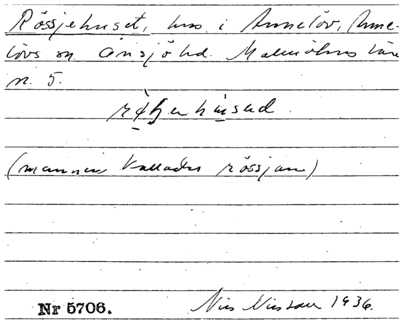 Rössjehuset, hus i Annelöv, Anne-
lövs sn Onsjö hd. Malmöhus län
n. 5.
(mannen kallades Rössjan)
Nr 5706.
Nils Nilsson 1936.